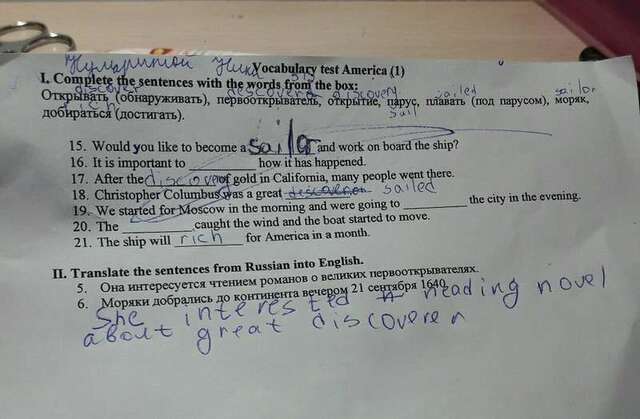 Vocabulary test America (1)
I. Complete the sentences with the words from the box:
discover discoverer discovery sailed sailor
Открывать (обнаруживать), первооткрыватель, открытие, парус, плавать (под парусом), моряк,
rich sail
добираться (достигать).
15. Would you like to become a sailor and work on board the ship?
16. It is important to __________ how it has happened.
17. After the discovery of gold in California, many people went there.
18. Christopher Columbus was a great discoverer sailed
19. We started for Moscow in the morning and were going to __________ the city in the evening.
20. The __________ caught the wind and the boat started to move.
21. The ship will rich for America in a month.
II. Translate the sentences from Russian into English.
5. Она интересуется чтением романов о великих первооткрывателях.
6. Моряки добрались до континента вечером 21 сентября 1640.
She interested reading novel
about great discoverer